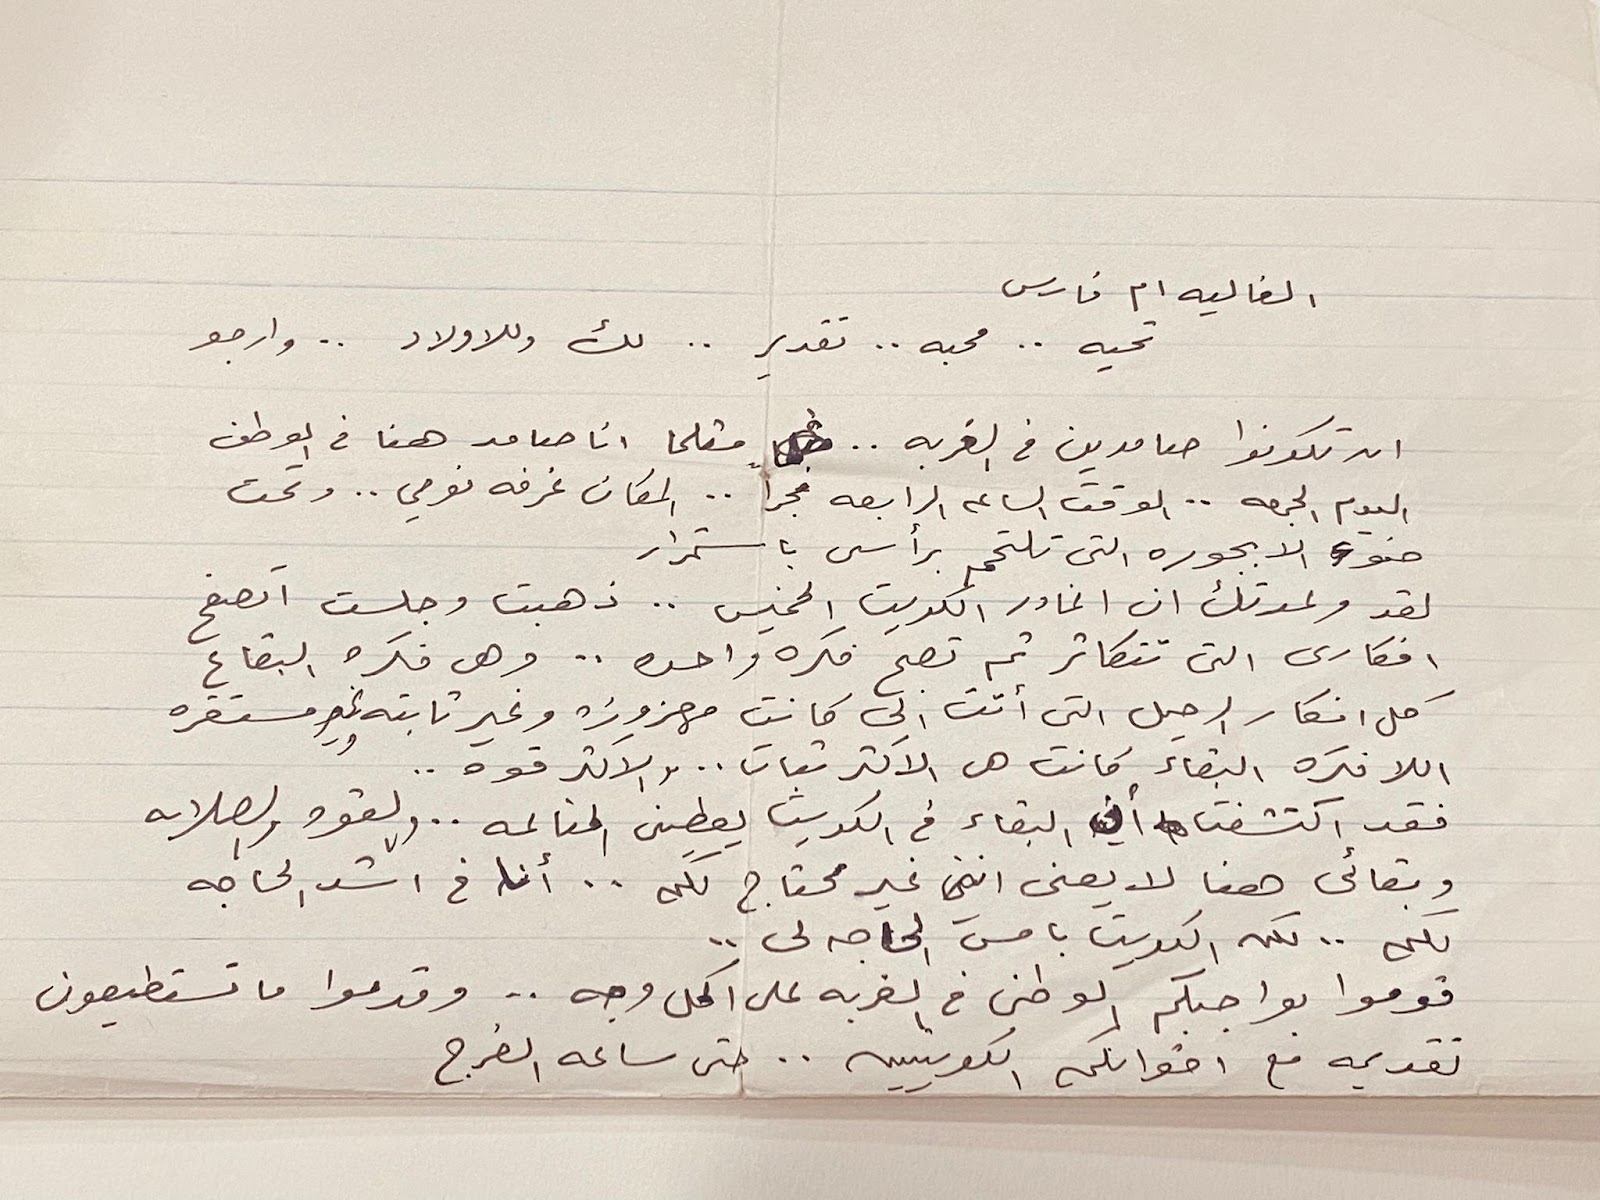 الغاليه ام فارس
تحيه .. محبه .. تقدير .. لك وللاولاد .. وارجو
ان تكونوا صامدين في الغربه .. مثلما انا صامد هنا في الوطن
اليوم الجمعه .. الوقت الساعه الرابعه فجراً .. المكان غرفه نومي .. وتحت
ضوء الابجوره التى تلتحم برأسى باستمرار
لقد وعدتك ان اغادر الكويت الخميس .. ذهبت وجلست اتصفح
افكارى التى تتكاثر ثم تصبح فكره واحده .. وهى فكره البقاء
كل افكار الرحيل التى أتت الى كانت مهزوزه وغير ثابته وغير مستقره
اللا فكره البقاء كانت هى الاكثر ثبات .. والاكثر قوه ..
فقد اكتشفت أن البقاء في الكويت يعطينى المناعه .. والقوه والصلابه
وبقائى هنا لا يعنى اننى غير محتاج لكم .. أنا في اشد الحاجه
لكم .. لكن الكويت بامس الحاجه لى ..
قوموا بواجبكم الوطنى في الغربه على اكمل وجه .. وقدموا ما تستطيعون
تقديمه مع اخوانكم الكويتيين .. حتى ساعه الفرج